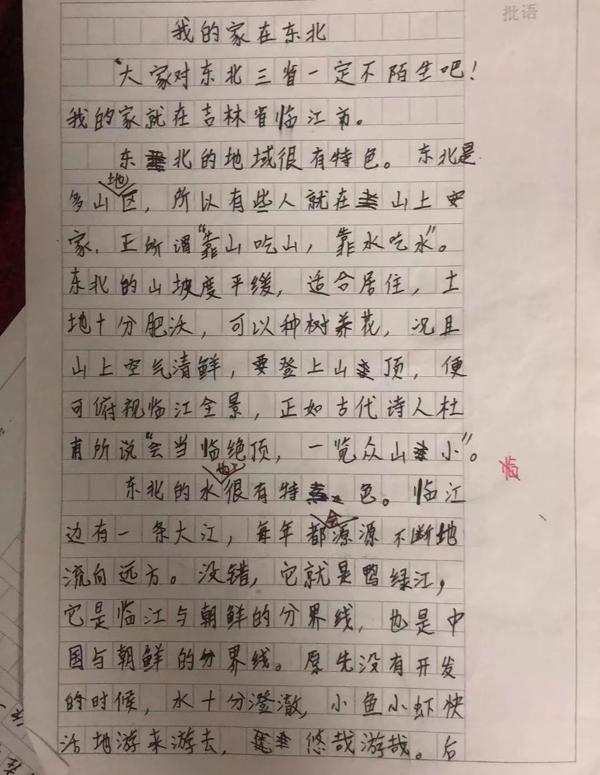 批语
我的家在东北
大家对东北三省一定不陌生吧！
我的家就在吉林省临江市。
东北的地域很有特色。东北是
多山地区，所以有些人就在山上安
家，正所谓“靠山吃山，靠水吃水”。
东北的山坡度平缓，适合居住，土
地十分肥沃，可以种树养花，况且
山上空气清鲜，要登上山顶，便
可俯视临江全景，正如古代诗人杜
甫所说“会当临绝顶，一览众山小”。
临
东北的水也很有特色。临江
边有一条大江，每年都会源源不断地
流向远方。没错，它就是鸭绿江，
它是临江与朝鲜的分界线，也是中
国与朝鲜的分界线。原先没有开发
的时候，水十分澄澈，小鱼小虾快
活地游来游去，悠哉游哉。后